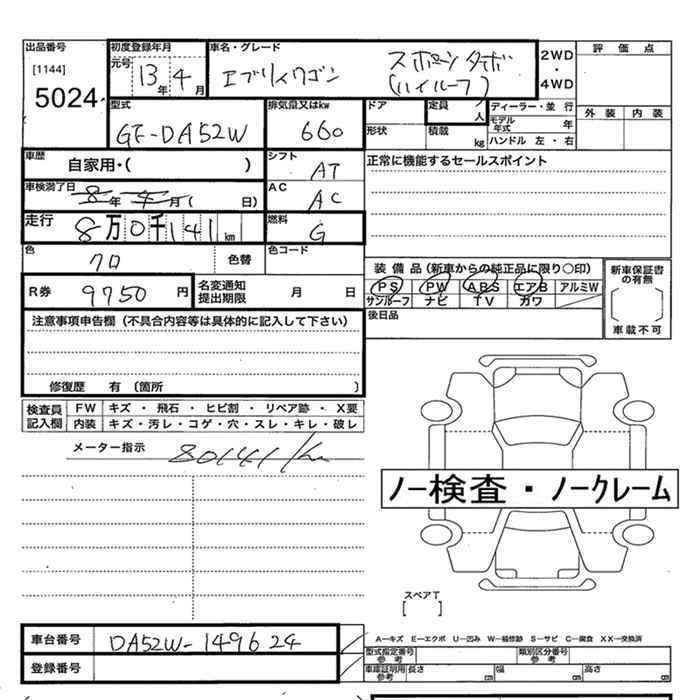 出品番号 [1144] 5024
初度登録年月 元号 13年 4月
車名・グレード エブリィワゴン スポーツターボ (ハイルーフ)
2WD・4WD
評価点
外装 内装
型式 GF-DA52W
排気量又はkw 660
ドア 形状
定員 人
積載 kg
ディーラー・並行
モデル年式 年
ハンドル 左・右
車歴 自家用・( )
シフト AT
正常に機能するセールスポイント
車検満了日 8年 4月 ( 日)
AC AC
走行 8万0千141km
燃料 G
色 クロ 色替
色コード
装備品(新車からの純正品に限り○印)
PS PW ABS エアB アルミW
サンルーフ ナビ TV カワ
新車保証書の有無
車載不可
後日品
R券 9750円
名変通知提出期限 月 日
注意事項申告欄(不具合内容等は具体的に記入して下さい)
修復歴 有〔箇所 〕
検査員記入欄
FW キズ・飛石・ヒビ割・リペア跡・X要
内装 キズ・汚レ・コゲ・穴・スレ・キレ・破レ
メーター指示 80141km
ノー検査・ノークレーム
スペアT
[ ]
車台番号 DA52W-149624
登録番号
A―キズ E―エクボ U―凹み W―補修跡 S―サビ C―腐食 XX―交換済
型式指定番号 参考
類別区分番号 参考
車庫証明用 参考 長さ cm 幅 cm 高さ cm